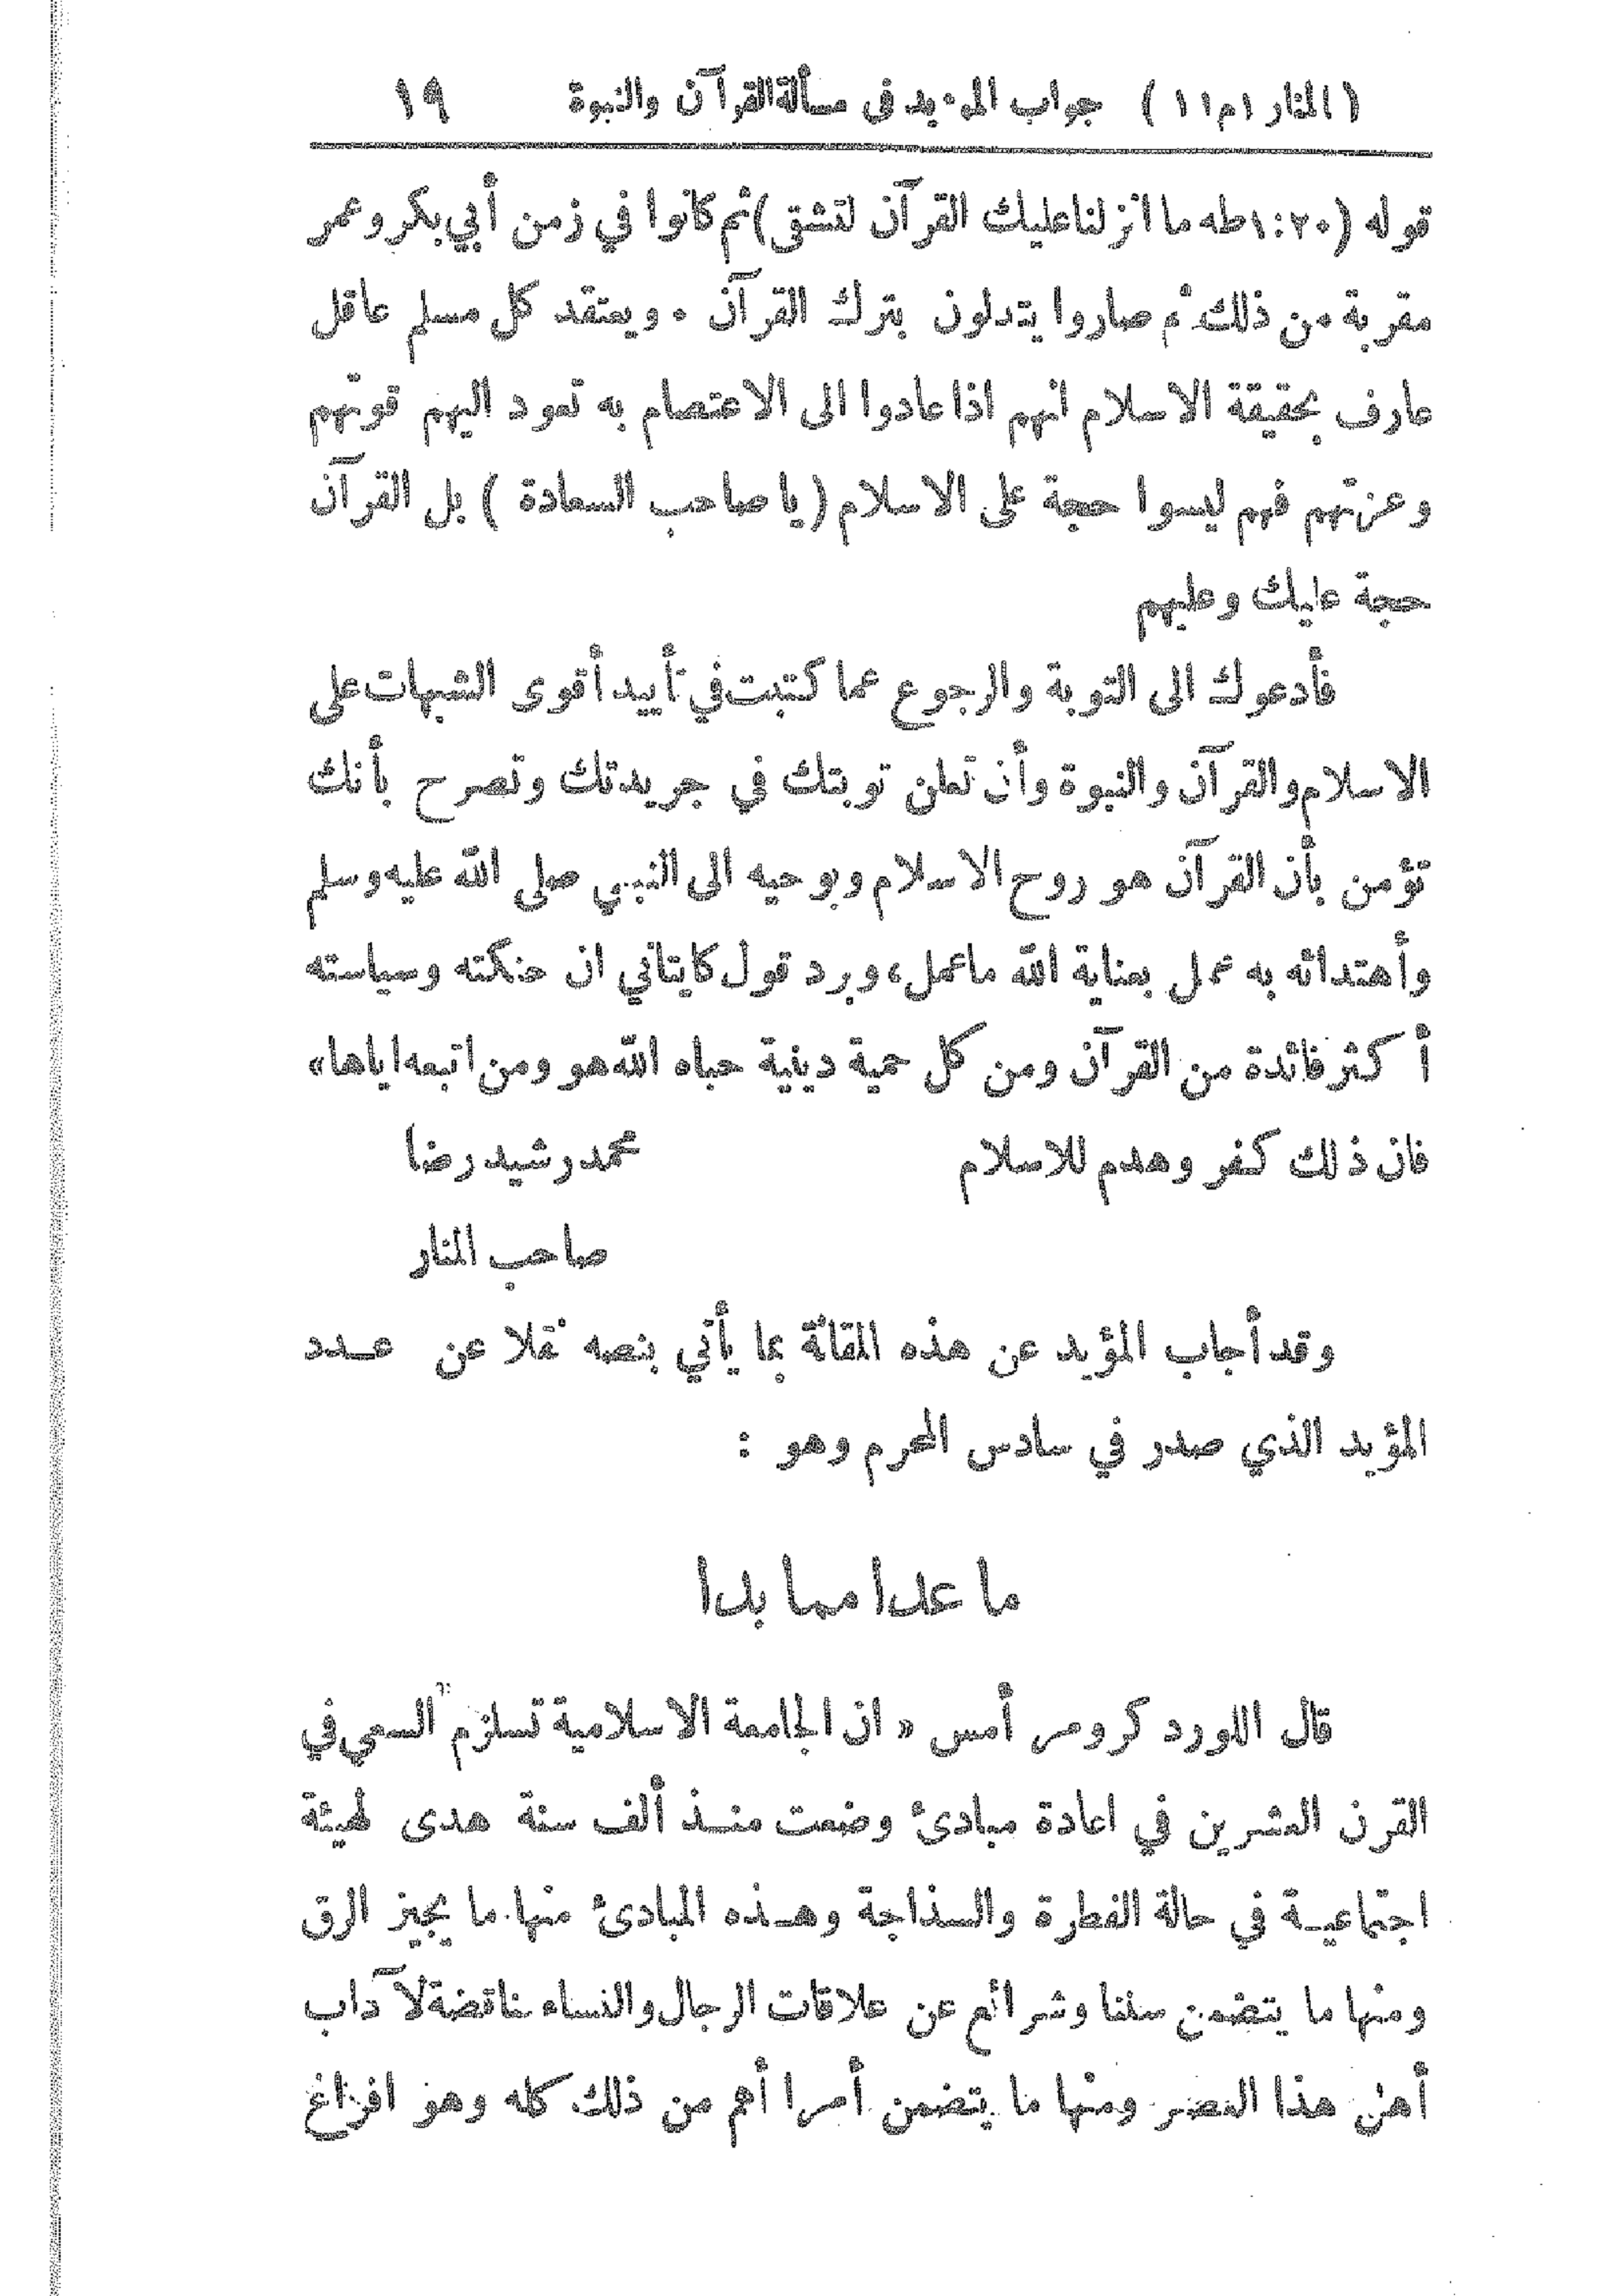 (المنار ١ م ١١) جواب المؤيد فى مسألة القرآن والنبوة ١٩
قوله (٢٠:١ طه ما انزلنا عليك القرآن لتشقى) ثم كانوا في زمن أبي بكر وعمر
مقربة من ذلك ثم صاروا يتدلون بترك القرآن . ويعتقد كل مسلم عاقل
عارف بحقيقة الاسلام انهم اذا عادوا الى الاعتصام به تعود اليهم قوتهم
وعزتهم فهم ليسوا حجة على الاسلام (يا صاحب السعادة) بل القرآن
حجة عليك وعليهم
فأدعوك الى التوبة والرجوع عما كتبت في تأييد أقوى الشبهات على
الاسلام والقرآن والنبوة وأن تعلن توبتك في جريدتك وتصرح بأنك
تؤمن بأن القرآن هو روح الاسلام وبوحيه الى النبي صلى الله عليه وسلم
وأهتدائه به عمل بعناية الله ما عمل، وبرد قول كايتاني ان حنكته وسياسته
أكثر فائدة من القرآن ومن كل حمية دينية حباه الله هو ومن اتبعه اياها»
فان ذلك كفر وهدم للاسلام محمد رشيد رضا
صاحب المنار
وقد أجاب المؤيد عن هذه المقالة بما يأتي بنصه نقلا عن عدد
المؤيد الذي صدر في سادس المحرم وهو :
ما عدا مما بدا
قال اللورد كرومر أمس « ان الجامعة الاسلامية تستلزم السعي في
القرن العشرين في اعادة مبادئ وضعت منذ ألف سنة هدى لهيئة
اجتماعية في حالة الفطرة والسذاجة وهذه المبادئ منها ما يجيز الرق
ومنها ما يتضمن سننا وشرائع عن علاقات الرجال والنساء مناقضة لآداب
أهل هذا العصر ومنها ما يتضمن أمرا أهم من ذلك كله وهو افراغ